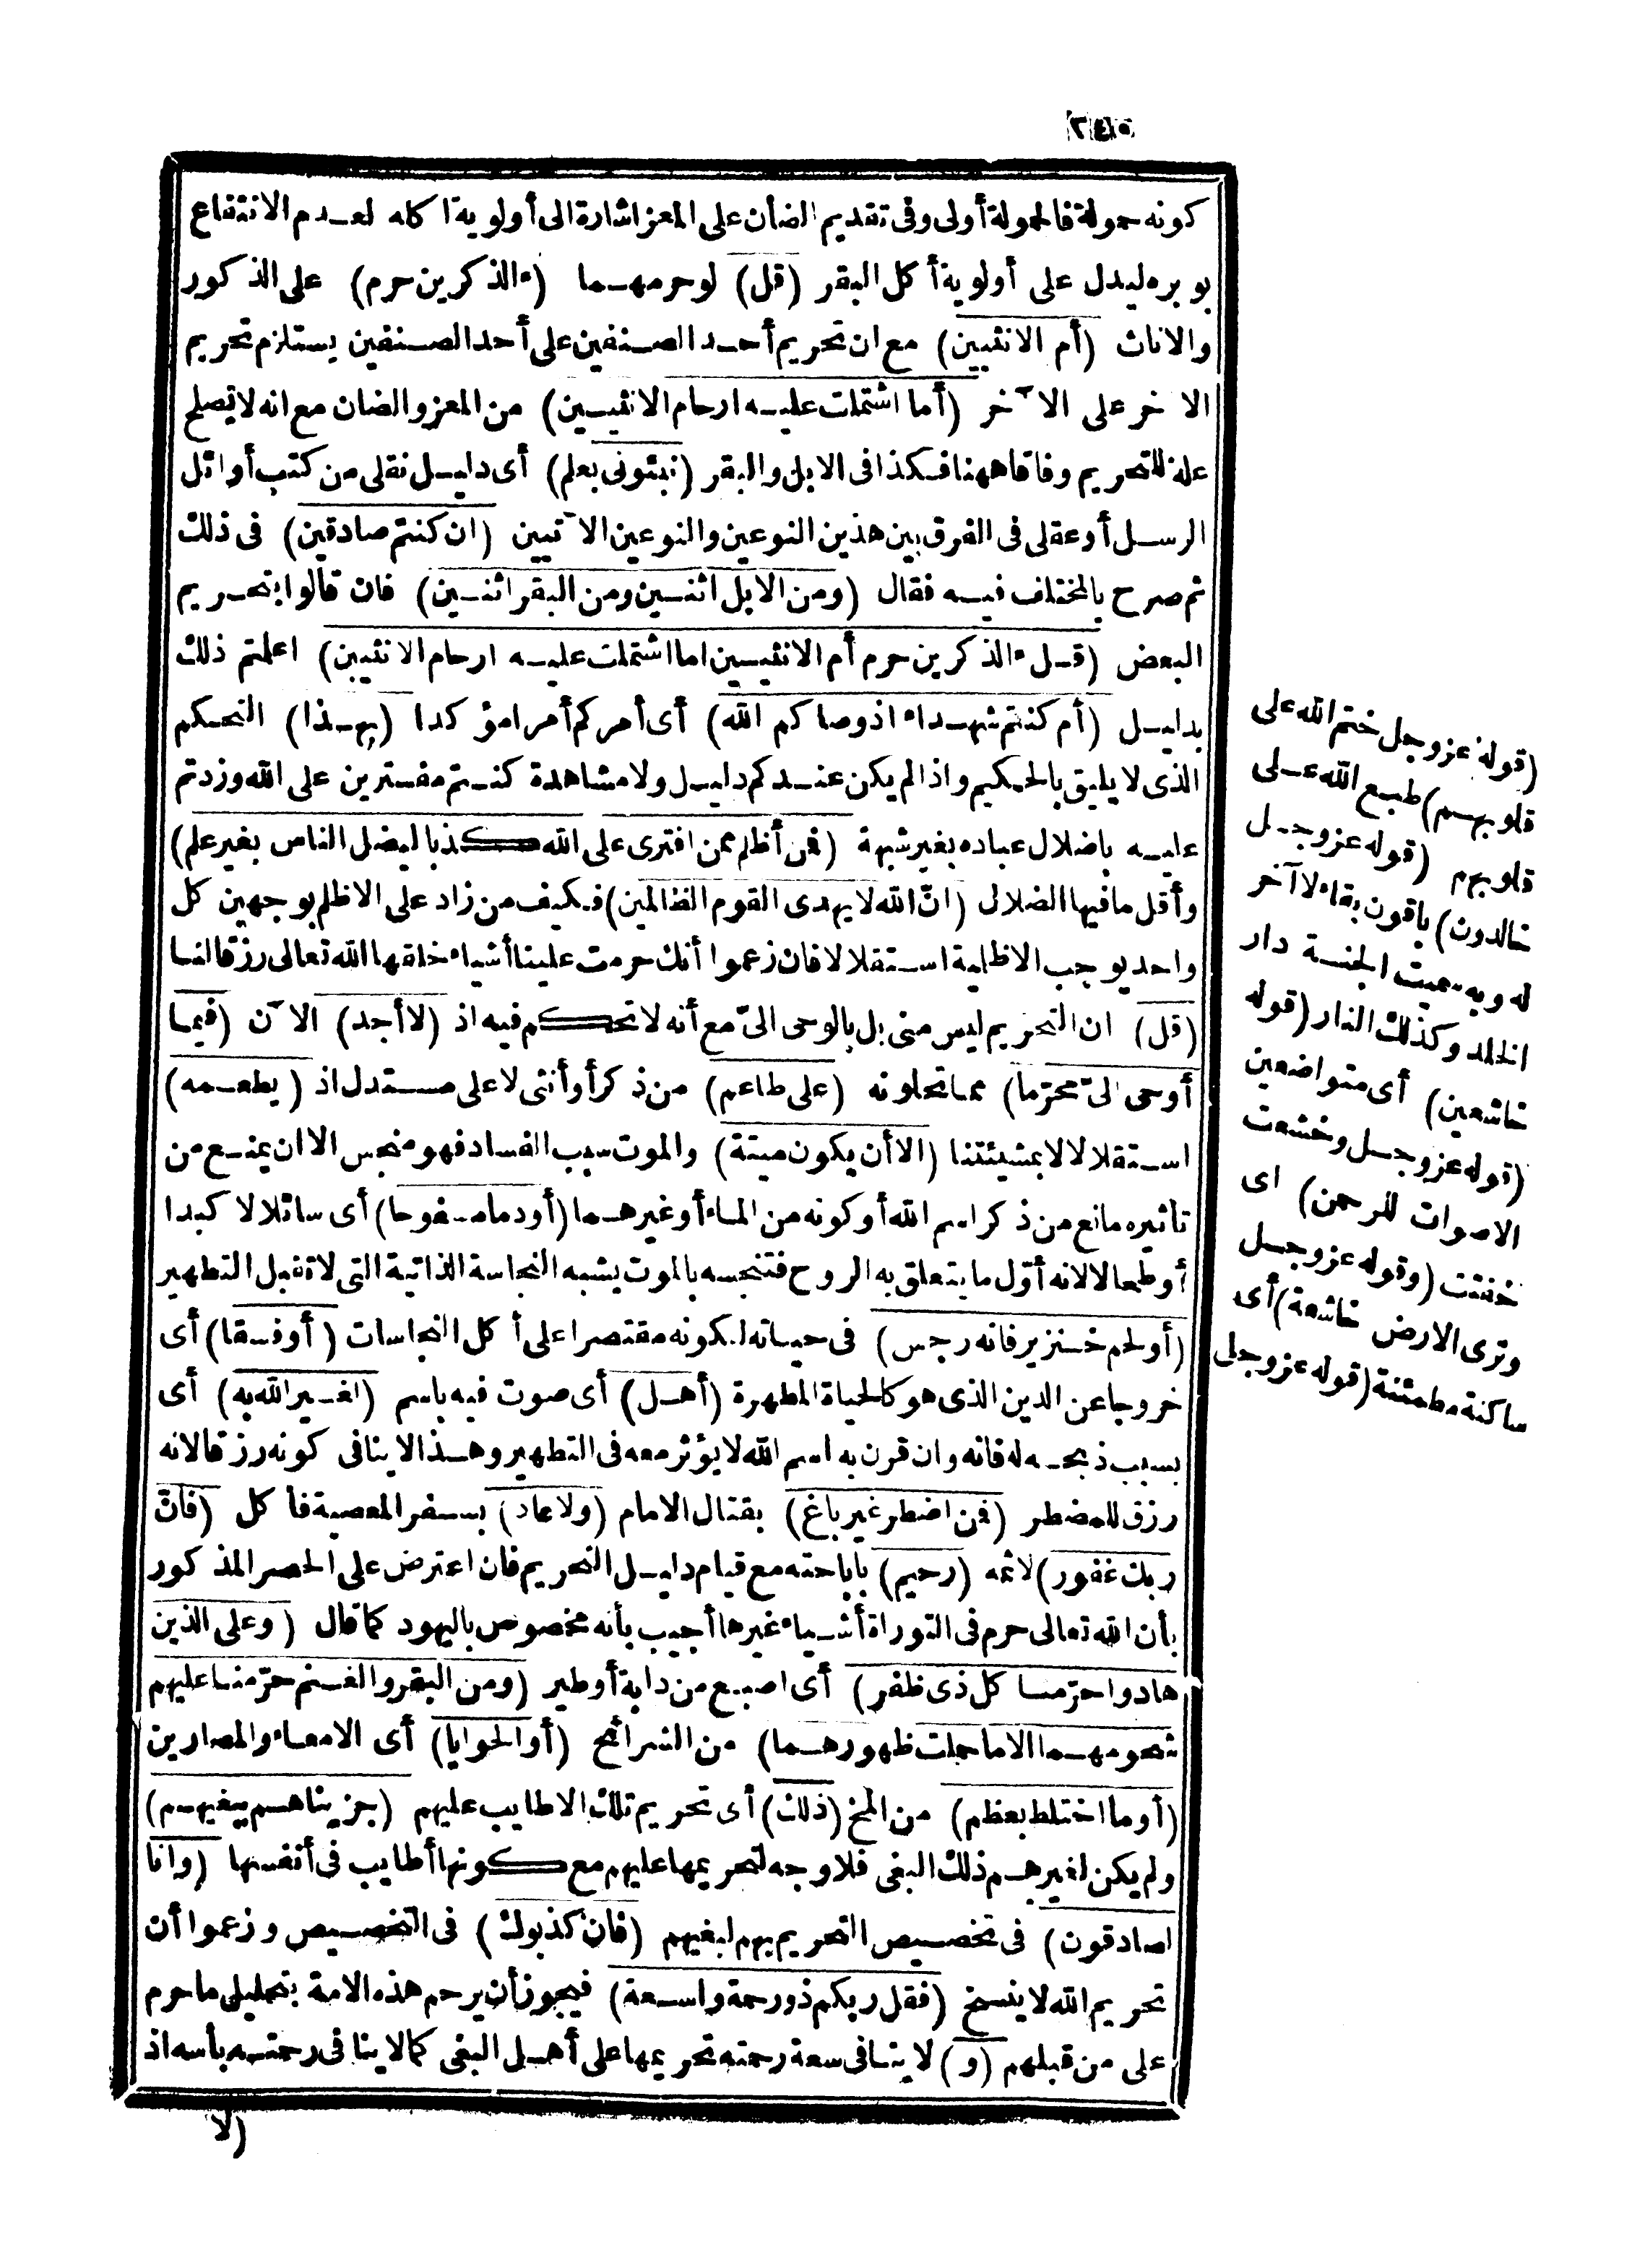 ٢٤٥
كونه حمولة فالحمولة أولى وفى تقديم الضأن على المعز اشارة الى أولوية اكله لعدم الانتفاع
بوبره ليدل على أولوية أكل البقر (قل) لو حرمهما (ءالذكرين حرم) على الذكور
والاناث (أم الانثيين) مع ان تحريم أحد الصنفين على أحد الصنفين يستلزم تحريم
الاخر على الآخر (أما اشتملت عليه ارحام الانثيين) من المعز والضان مع انه لا يصلح
علة للتحريم وفاقا ههنا فكذا فى الابل والبقر (نبئونى بعلم) أى دليل نقلى من كتب أوائل
الرسل أو عقلى فى الفرق بين هذين النوعين والنوعين الآتيين (ان كنتم صادقين) فى ذلك
ثم صرح بالمختلف فيه فقال (ومن الابل اثنين ومن البقر اثنين) فان قالوا بتحريم
البعض (قل ءالذكرين حرم أم الانثيين اما اشتملت عليه ارحام الانثيين) اعلمتم ذلك
بدليل (أم كنتم شهداء اذ وصاكم الله) أى أمركم أمرا مؤكدا (بهذا) التحكم
الذى لا يليق بالحكيم واذ لم يكن عندكم دليل ولا مشاهدة كنتم مفترين على الله وزدتم
عليه باضلال عباده بغير شبهة (فمن أظلم ممن افترى على الله كذبا ليضل الناس بغير علم)
وأقل ما فيها الضلال (انّ الله لا يهدى القوم الظالمين) فكيف من زاد على الاظلم بوجهين كل
واحد يوجب الاظلمية استقلالا فان زعموا أنك حرمت علينا أشياء خلقها الله تعالى رزقا لنا
(قل) ان التحريم ليس منى بل بالوحى الىّ مع أنه لا تحكم فيه اذ (لا أجد) الآن (فيما
أوحى الىّ محرّما) مما تحلونه (على طاعم) من ذكر أو أنثى لا على مستدل اذ (يطعمه)
استقلالا لا بمشيئتنا (الا أن يكون ميتة) والموت سبب الفساد فهو منجس الا ان يمنع من
تأثيره مانع من ذكر اسم الله أو كونه من الماء أو غيرهما (أو دما مسفوحا) أى سائلا لا كبدا
أو طحالا لانه أوّل ما يتعلق به الروح فتنجسه بالموت يشبه النجاسة الذاتية التى لا تقبل التطهير
(أو لحم خنزير فانه رجس) فى حياته لكونه مقتصرا على أكل النجاسات (أو فسقا) أى
خروجا عن الدين الذى هو كالحياة المطهرة (أهل) أى صوت فيه باسم (لغير الله به) أى
بسبب ذبحه له فانه وان قرن به اسم الله لا يؤثر معه فى التطهير وهذا لا ينافى كونه رزقا لانه
رزق للمضطر (فمن اضطر غير باغ) بقتال الامام (ولا عاد) بسفر المعصية فأكل (فانّ
ربك غفور) لاثمه (رحيم) باباحته مع قيام دليل التحريم فان اعترض على الحصر المذكور
بأن الله تعالى حرم فى التوراة أشياء غيرها أجيب بأنه مخصوص باليهود كما قال (وعلى الذين
هادوا حرّمنا كل ذى ظفر) أى اصبع من دابة أو طير (ومن البقر والغنم حرّمنا عليهم
شحومهما الا ما حملت ظهورهما) من الشرائح (أو الحوايا) أى الامعاء والمصارين
(أو ما اختلط بعظم) من المخ (ذلك) أى تحريم تلك الاطايب عليهم (جزيناهم ببغيهم)
ولم يكن لغيرهم ذلك البغى فلا وجه لتحريمها عليهم مع كونها أطايب فى أنفسها (وانا
لصادقون) فى تخصيص التحريم بهم لبغيهم (فان كذبوك) فى التخصيص وزعموا أن
تحريم الله لا ينسخ (فقل ربكم ذو رحمة واسعة) فيجوز أن يرحم هذه الامة بتحليل ما حرم
على من قبلهم (و) لا ينافى سعة رحمته تحريمها على أهل البغى كما لا ينافى رحمته بأسه اذ
(لا
(قوله عز وجل ختم الله على
قلوبهم) طبع الله على
قلوبهم (قوله عز وجل
خالدون) باقون بقاء لا آخر
له وبه سميت الجنة دار
الخلد وكذلك النار (قوله
خاشعين) أى متواضعين
(قوله عز وجل وخشعت
الاصوات للرحمن) اى
خفتت (وقوله عز وجل
وترى الارض خاشعة) أى
ساكنة مطمئنة (قوله عز وجل